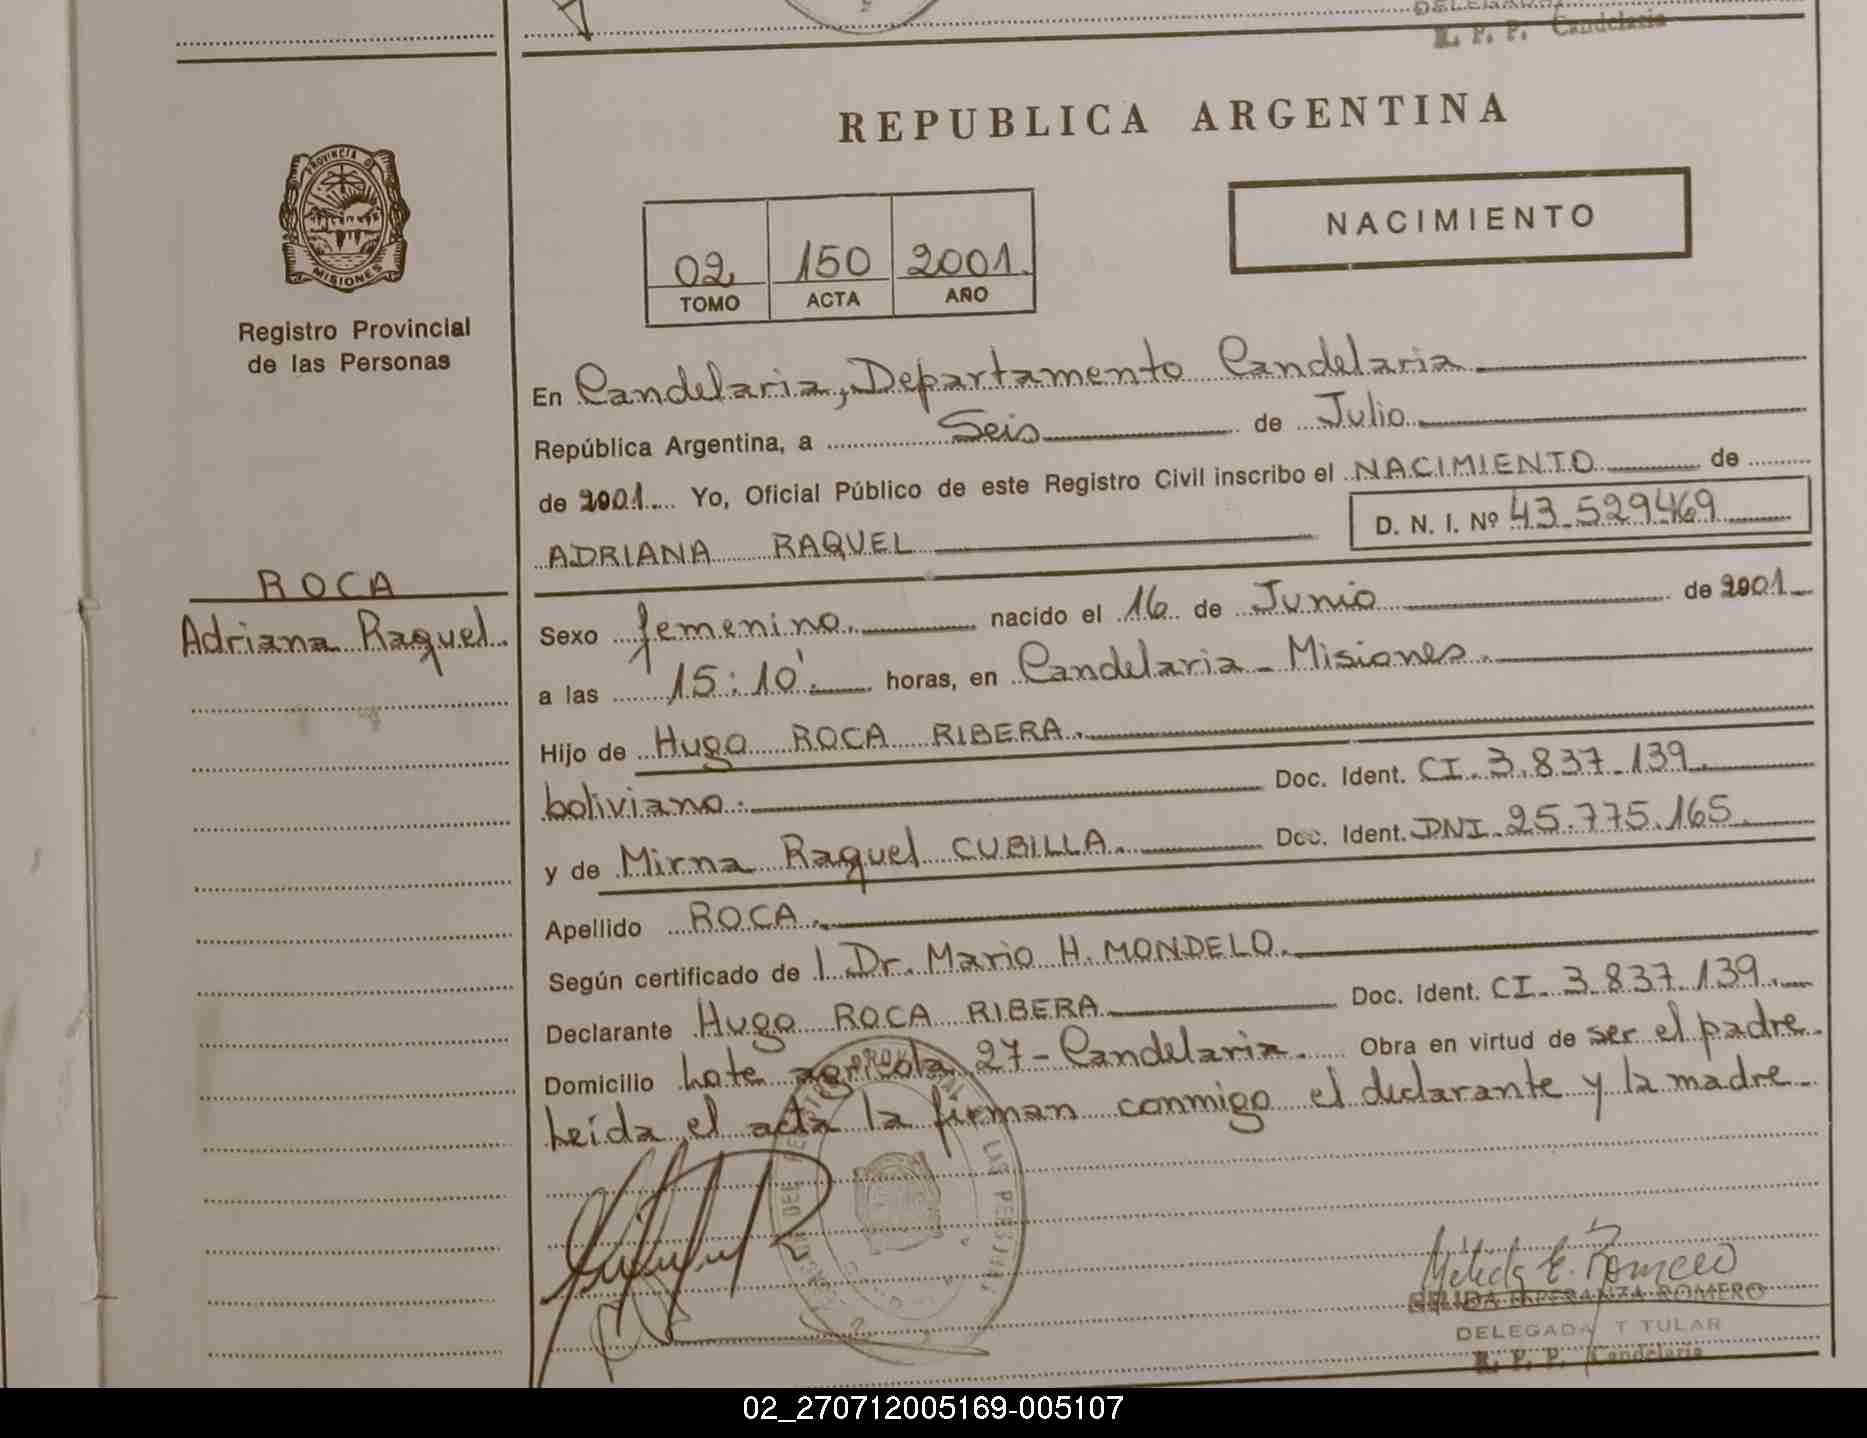 DELEGADA
R. P. P. Candelaria
REPUBLICA ARGENTINA
PROVINCIA D
MISIONES
Registro Provincial
de las Personas
NACIMIENTO
02 150 2001
TOMO ACTA AÑO
En Candelaria, Departamento Candelaria
República Argentina, a Seis de Julio
de 2001 Yo, Oficial Público de este Registro Civil inscribo el NACIMIENTO de
D. N. I. Nº 43.529469
ADRIANA RAQUEL
ROCA
Adriana Raquel.
Sexo femenino. nacido el 16 de Junio de 2001
a las 15:10'. horas, en Candelaria - Misiones.
Hijo de Hugo ROCA RIBERA.
boliviano. Doc. Ident. CI. 3.837.139.
y de Mirna Raquel CUBILLA. Doc. Ident. DNI. 25.775.165.
Apellido ROCA.
Según certificado de l Dr. Mario H. MONDELO.
Declarante Hugo ROCA RIBERA Doc. Ident. CI. 3.837.139.
Domicilio Lote agricola 27 - Candelaria. Obra en virtud de ser el padre.
Leida el acta la firman conmigo el declarante y la madre.
LAS PERSONAS
Romero
ESPERANZA ROMERO
DELEGADA T TULAR
R. P. P. Candelaria
02_270712005169-005107